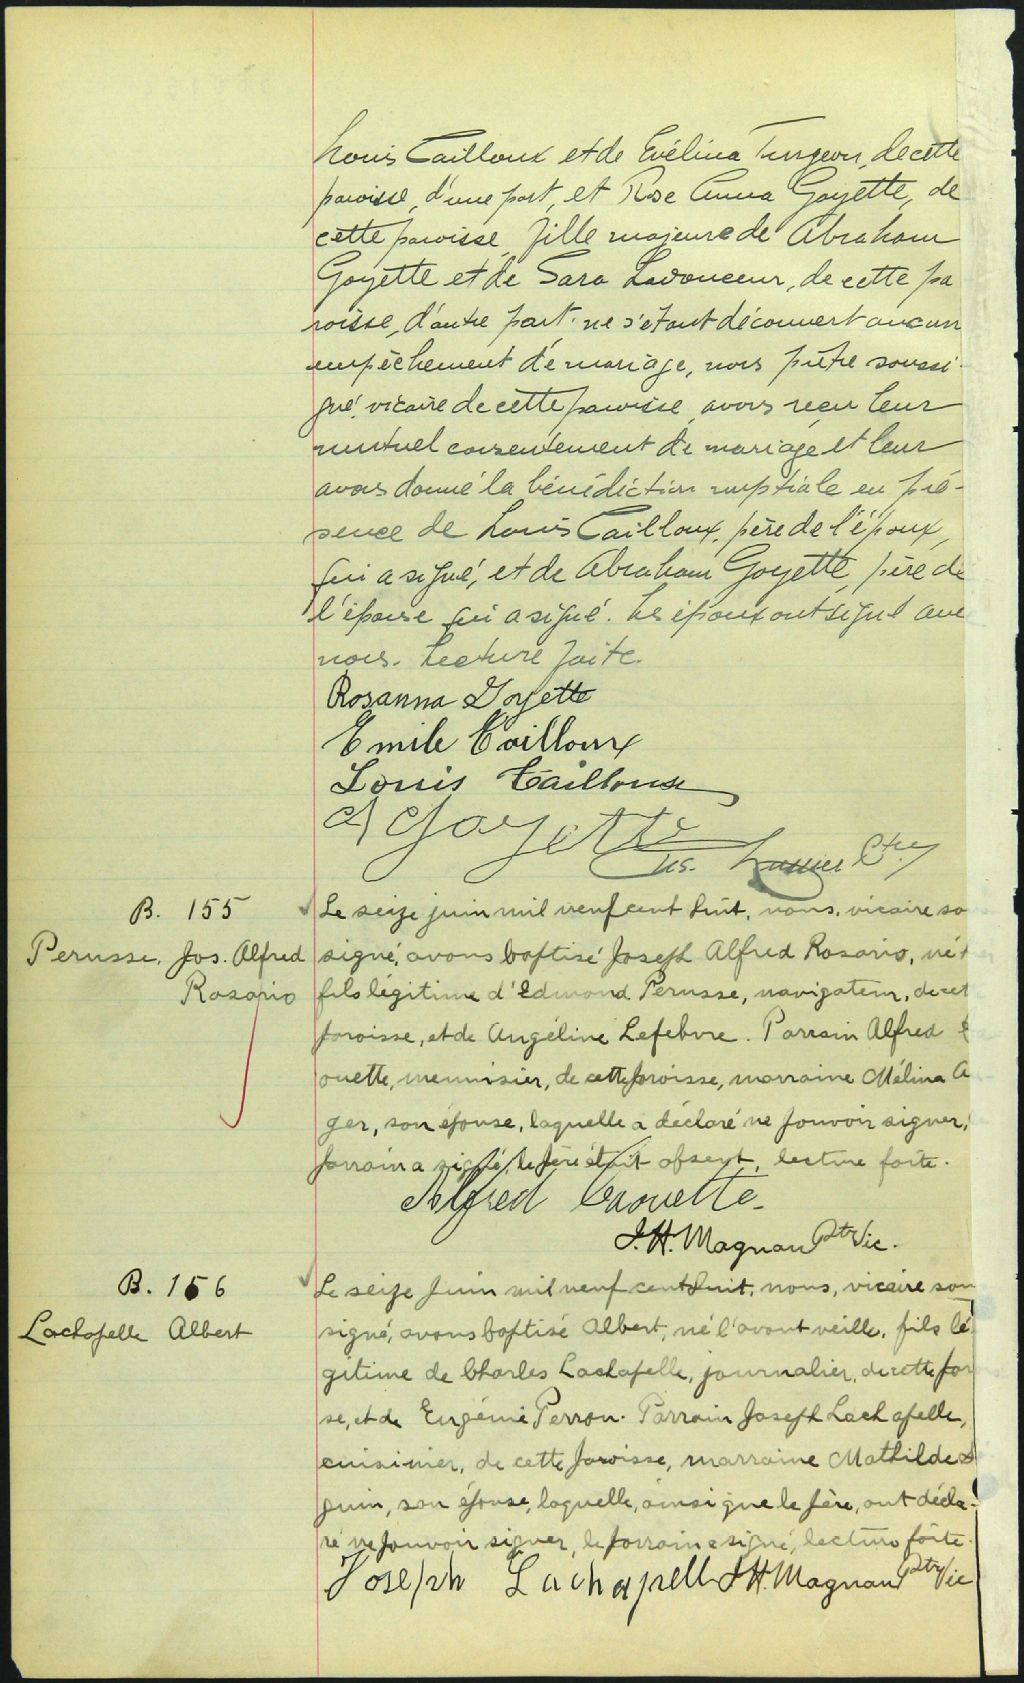 Louis Cailloux et de Evélina Turgeon, de cette
paroisse, d'une part, et Rose Anna Goyette, de
cette paroisse, fille majeure de Abraham
Goyette et de Sara Ladouceur, de cette pa
roisse, d'autre part: ne s'étant découvert aucun
empêchement de mariage, nous prêtre soussi
gné, vicaire de cette paroisse, avons reçu leur
mutuel consentement de mariage et leur
avons donné la bénédiction nuptiale en pré-
sence de Louis Cailloux, père de l'époux,
qui a signé, et de Abraham Goyette, père de
l'épouse qui a signé. Les époux ont signé avec
nous. Lecture faite.
Rosanna Goyette
Emile Cailloux
Louis Cailloux
A Goyette
Ptre
B. 155
Perusse, Jos. Alfred
Rosario
Le seize juin mil neuf cent huit, nous, vicaire so
signé, avons baptisé Joseph Alfred Rosario, né
fils légitime d'Edmond Perusse, navigateur, de cet
paroisse, et de Angéline Lefebvre. Parrain Alfred
ouette, menuisier, de cette paroisse, marraine Mélina
ger, son épouse, laquelle a déclaré ne pouvoir signer,
parrain a signé, le père était absent, lecture faite.
Alfred Chouette
J. H. Magnan Ptre Vic.
B. 156
Lachapelle Albert
Le seize juin mil neuf cent huit, nous, vicaire sou
signé, avons baptisé Albert, né l'avant veille, fils lé
gitime de Charles Lachapelle, journalier, de cette par
se, et de Eugénie Perron. Parrain Joseph Lachapelle,
cuisinier, de cette paroisse, marraine Mathilde
guin, son épouse, laquelle, ainsi que le père, ont décla-
ré ne pouvoir signer, le parrain a signé, lecture faite.
Joseph Lachapelle J. H. Magnan Ptre Vic